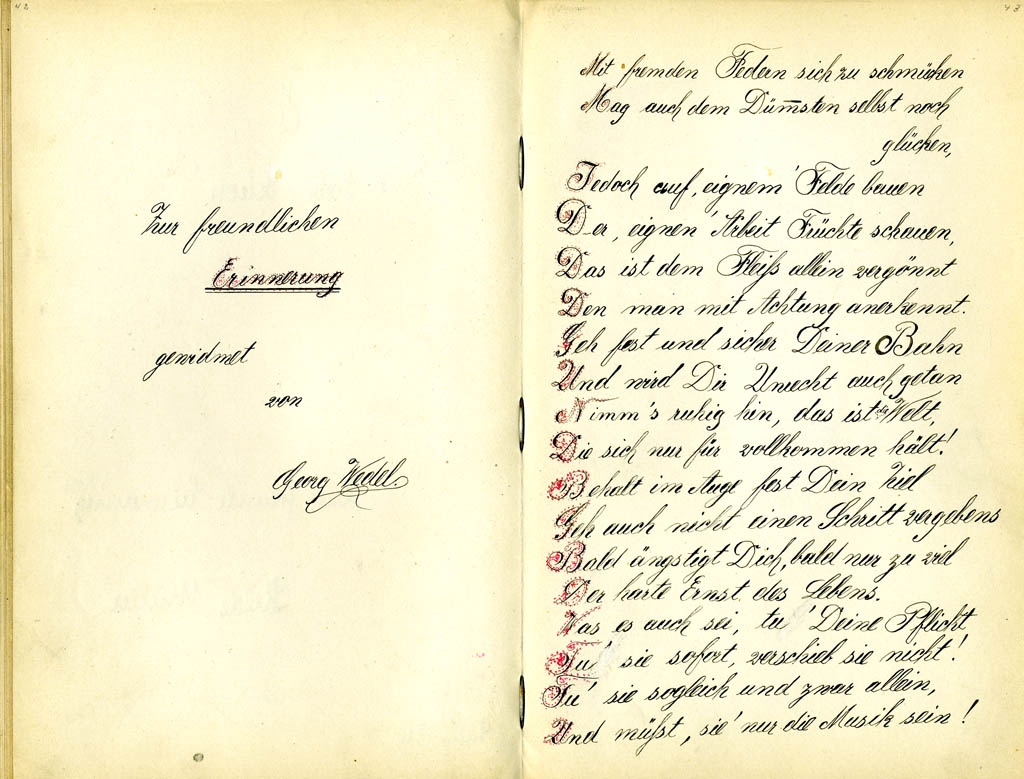 42
Zur freundlichen
Erinnerung
gewidmet
von
Georg Wedel.
43
Mit fremden Federn sich zu schmücken
Mag auch dem Düm̅sten selbst noch
glücken,
Jedoch auf, eignem' Felde bauen
Der, eignen' Arbeit Früchte schauen,
Das ist dem Fleiß allein vergönnt
Den man mit Achtung anerkennt.
Geh fest und sicher Deiner Bahn
Und wird Dir Unrecht auch getan
Nimm's ruhig hin, das ist die Welt,
Die sich nur für vollkommen hält!
Behalt im Auge fest Dein Ziel
Geh auch nicht einen Schritt vergebens
Bald ängstigt Dich, bald nur zu viel
Der harte Ernst des Lebens.
Was es auch sei, tu' Deine Pflicht
Tu' sie sofort, verschieb sie nicht!
Tu' sie sogleich und zwar allein,
Und müßt, sie' nur die Musik sein!